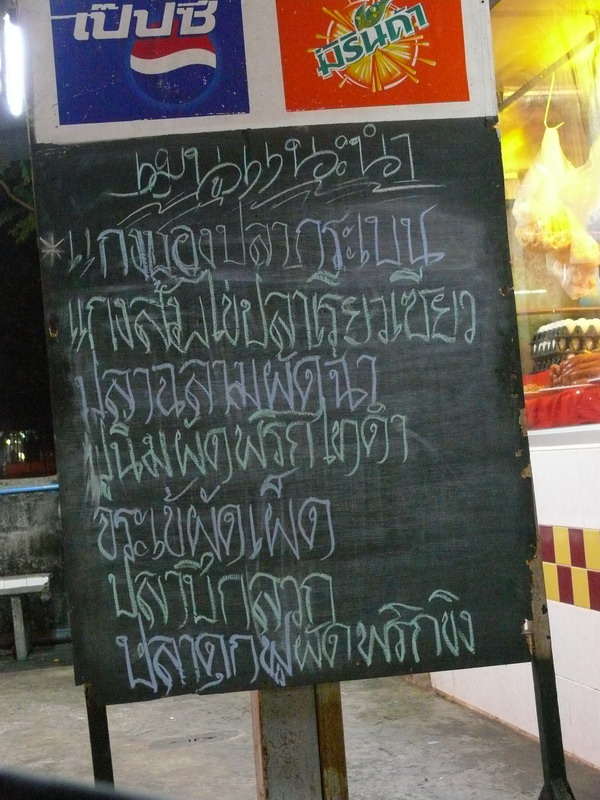 เป๊ปซี่
มิรินด้า
เมนูแนะนำ
แกงป่าปลากระเบน
แกงส้มไข่ปลาเรียวเซียว
ปลาฉลามผัดฉ่า
ปูนิ่มผัดพริกไทดำ
จระเข้ผัดเผ็ด
ปลาบึกลวก
ปลาดุกฟูผัดพริกขิง